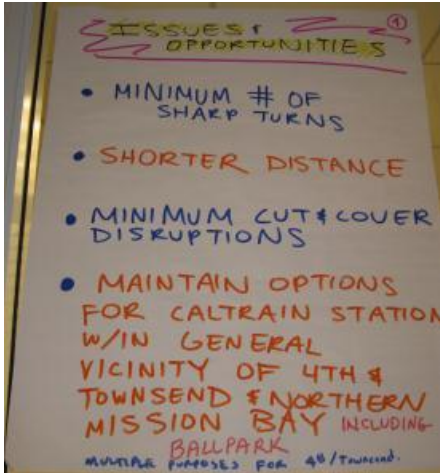 ISSUES &
OPPORTUNITIES
1
• MINIMUM # OF
SHARP TURNS
• SHORTER DISTANCE
• MINIMUM CUT & COVER
DISRUPTIONS
• MAINTAIN OPTIONS
FOR CALTRAIN STATION
W/IN GENERAL
VICINITY OF 4TH &
TOWNSEND & NORTHERN
MISSION BAY INCLUDING
BALLPARK
MULTIPLE PURPOSES FOR 4th/Townsend.